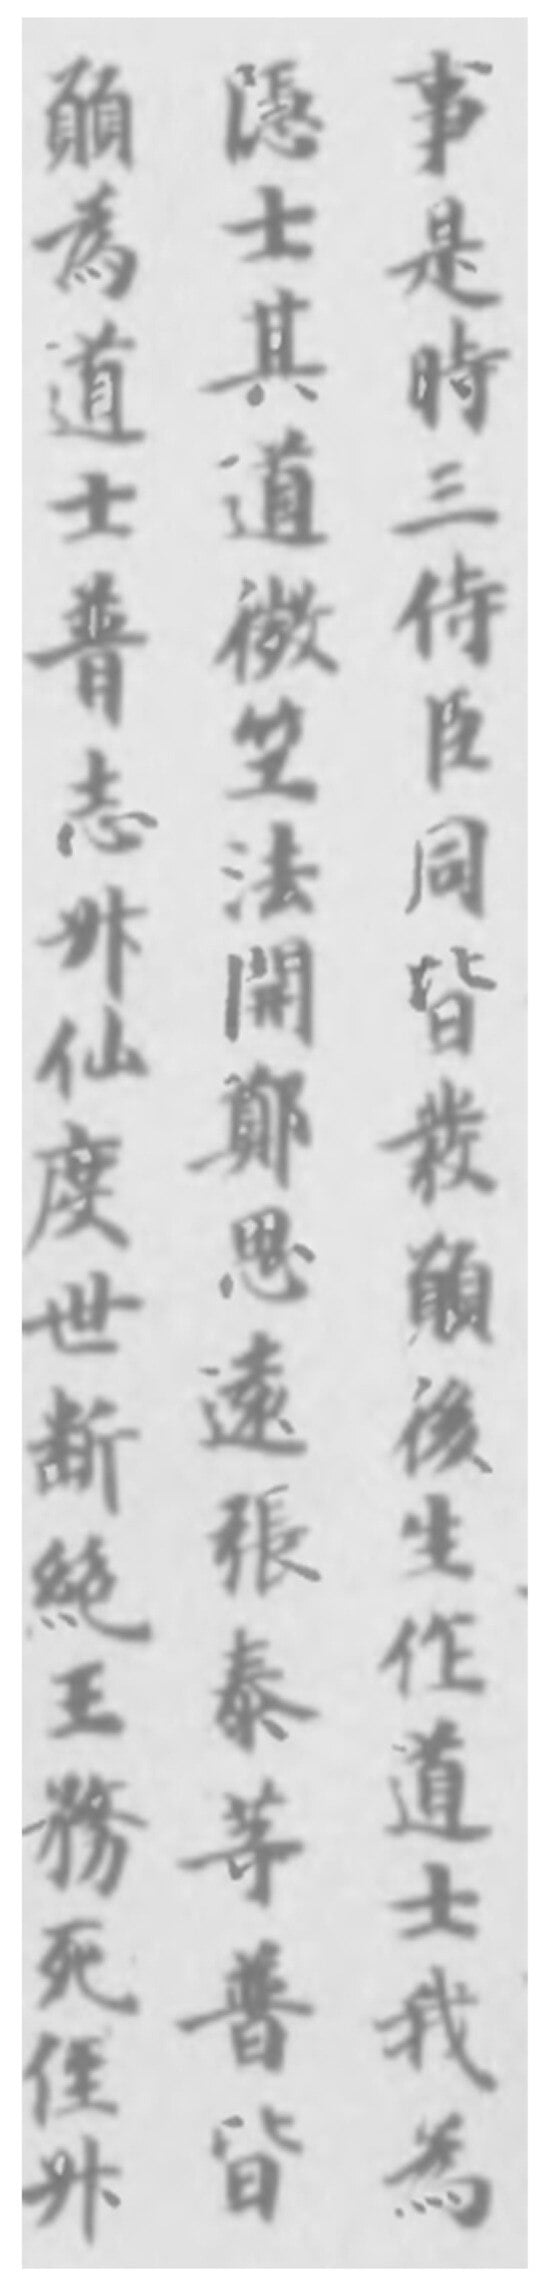 事是時三侍臣同皆發願後生作道士我為
隱士其道微竺法開鄭思遠張泰等普皆
願為道士普志升仙度世断絕王務死径升